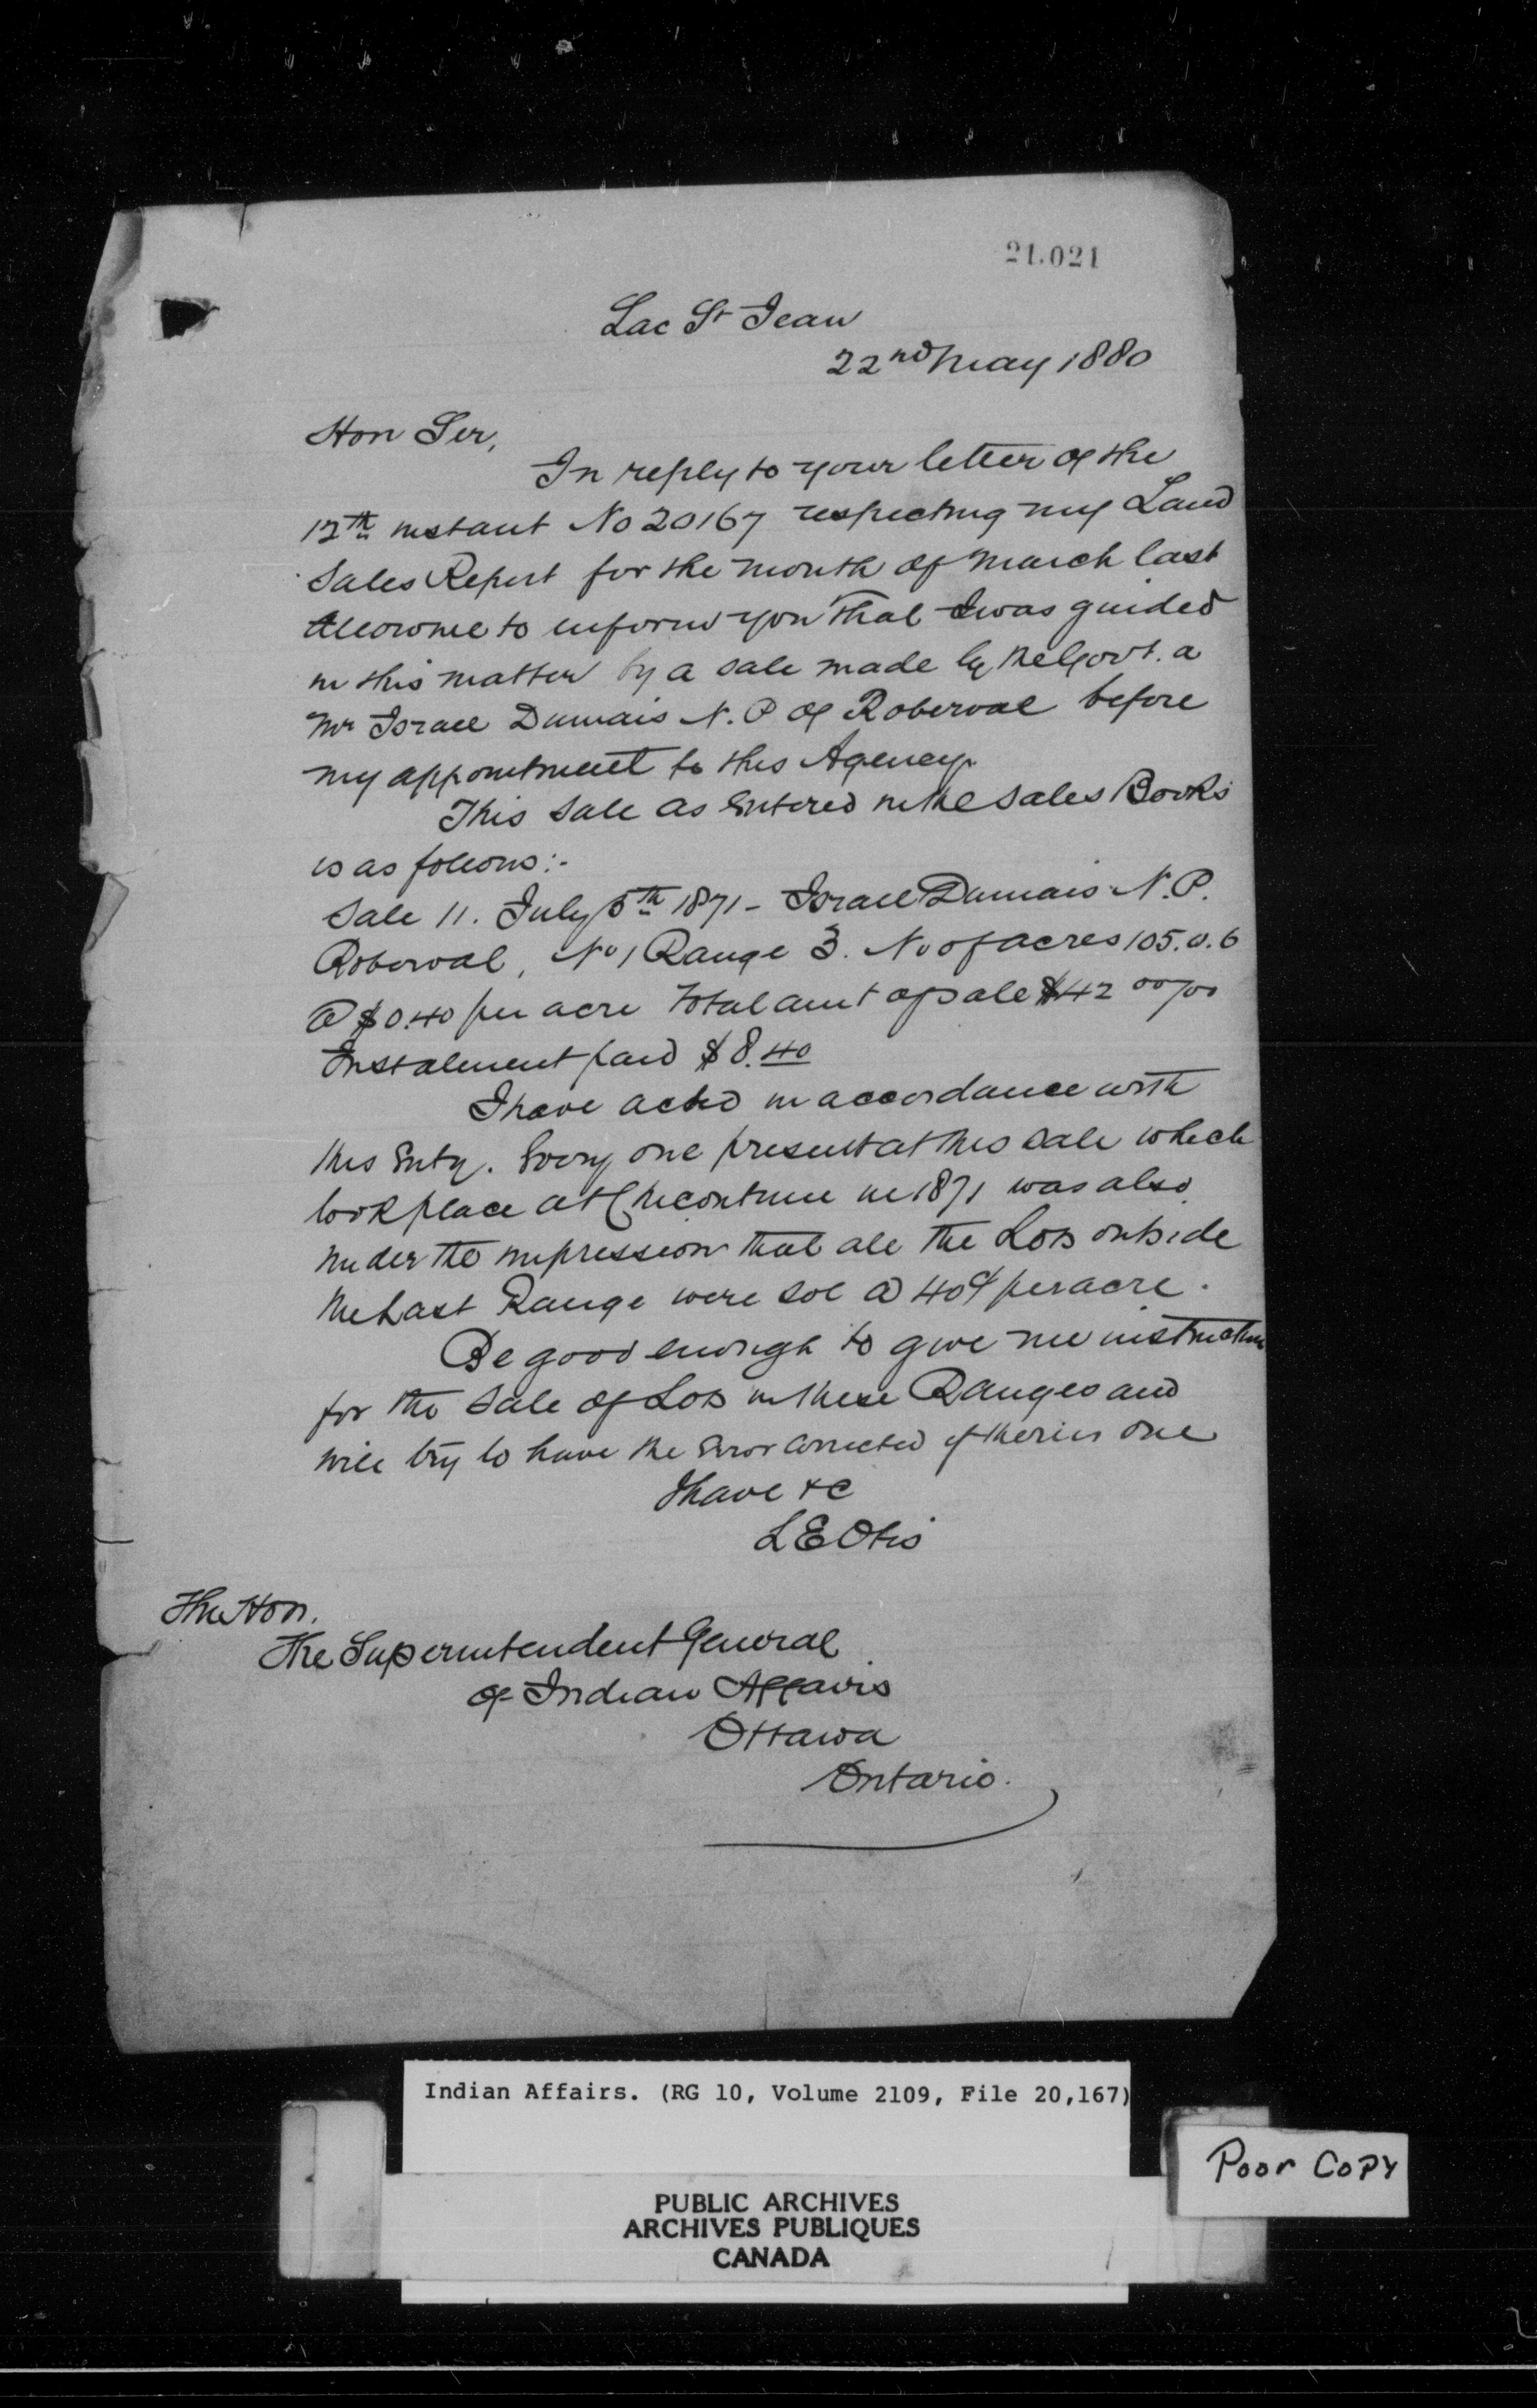 21.021
Lac St Jean
22nd May 1880
Hon Sir,
In reply to your letter of the
12th instant No 20167 respecting my Land
Sales Report for the month of March last
Allow me to inform you that I was guided
in this matter by a sale made by the Govt. a
Mr Israel Dumais N.P of Roberval before
my appointment to this Agency.
This Sale as Entered in the Sales Books
is as follows:-
Sale 11. July 5th 1871 - Israel Dumais N.P.
Roberval, No 1 Range 3. No of acres 105.0.6
@ $0.40 per acre Total amt of sale $42 00/00
Instalment paid $8.40
I have acted in accordance with
this Entry. Every one present at this sale which
took place at Chicoutimi in 1871 was also
under the impression that all the Lots outside
the Last Range were sol @ 40¢ per acre.
Be good enough to give me instructions
for the Sale of Lots in these Ranges and
will try to have the Error Corrected if there is one
I have &c
L E Otis
The Hon.
The Superintendent General
of Indian Affairs
Ottawa
Ontario.
Indian Affairs. (RG 10, Volume 2109, File 20,167)
Poor Copy
PUBLIC ARCHIVES
ARCHIVES PUBLIQUES
CANADA